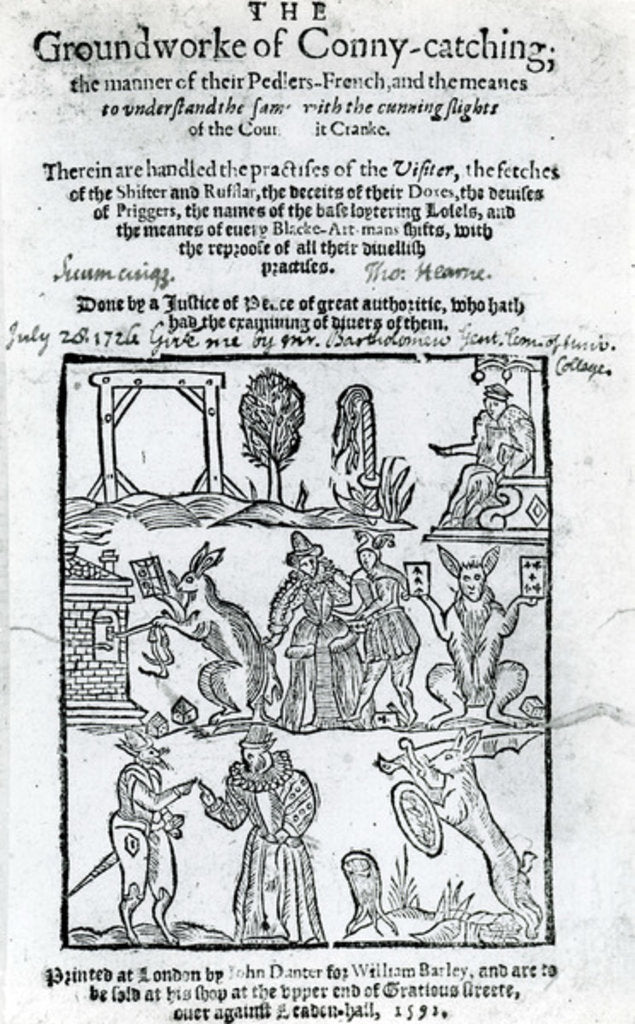 THE
Groundworke of Conny-catching;
the manner of their Pedlers-French, and the meanes
to vnderstand the same with the cunning slights
of the Cou it Cranke.
Therein are handled the practises of the Visiter, the fetches
of the Shifter and Rufflar, the deceits of their Doxes, the deuises
of Priggers, the names of the base loytering Losels, and
the meanes of euery Blacke-Art-mans shifts, with
the reproofe of all their diuellish
practises.
Suum cuiq3. Tho: Hearne.
Done by a Justice of Peace of great authoritie, who hath
had the examining of diuers of them.
July 28. 1726 Give me by mr. Bartholomew Gent. Com. of Univ.
College.
Printed at London by John Danter for William Barley, and are to
be sold at his shop at the vpper end of Gratious streete,
ouer against Leaden-hall, 1592.